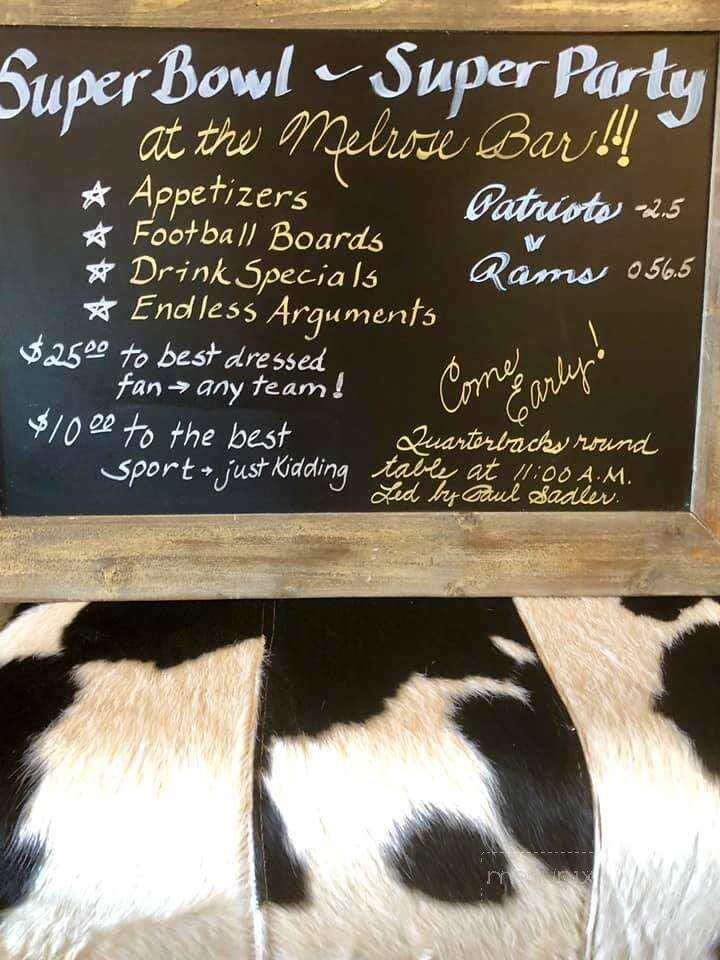 Super Bowl ~ Super Party
at the Melrose Bar!!!
☆ Appetizers
☆ Football Boards
☆ Drink Specials
☆ Endless Arguments
Patriots -2.5
v
Rams O 56.5
$25.00 to best dressed
fan → any team!
$10.00 to the best
sport → just Kidding
Come
Early!
Quarterbacks round
table at 11:00 A.M.
Led by Paul Sadler.